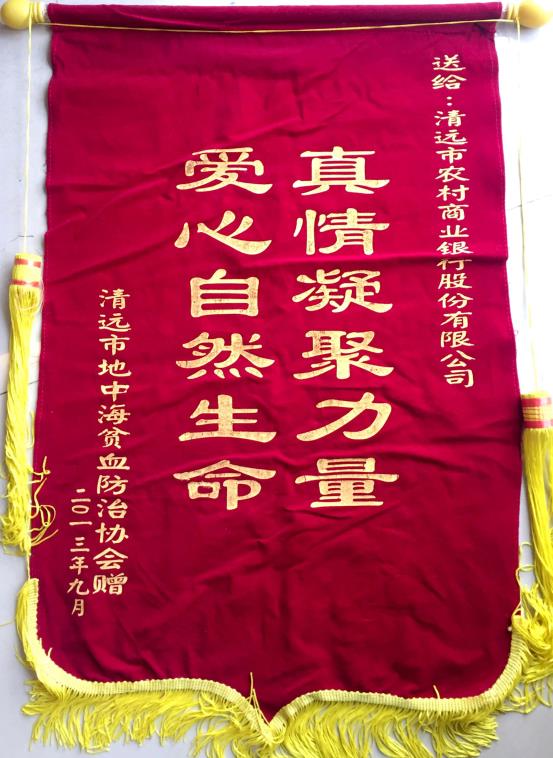 送给：清远市农村商业银行股份有限公司
真情凝聚力量
爱心自然生命
清远市地中海贫血防治协会赠
二〇一三年九月